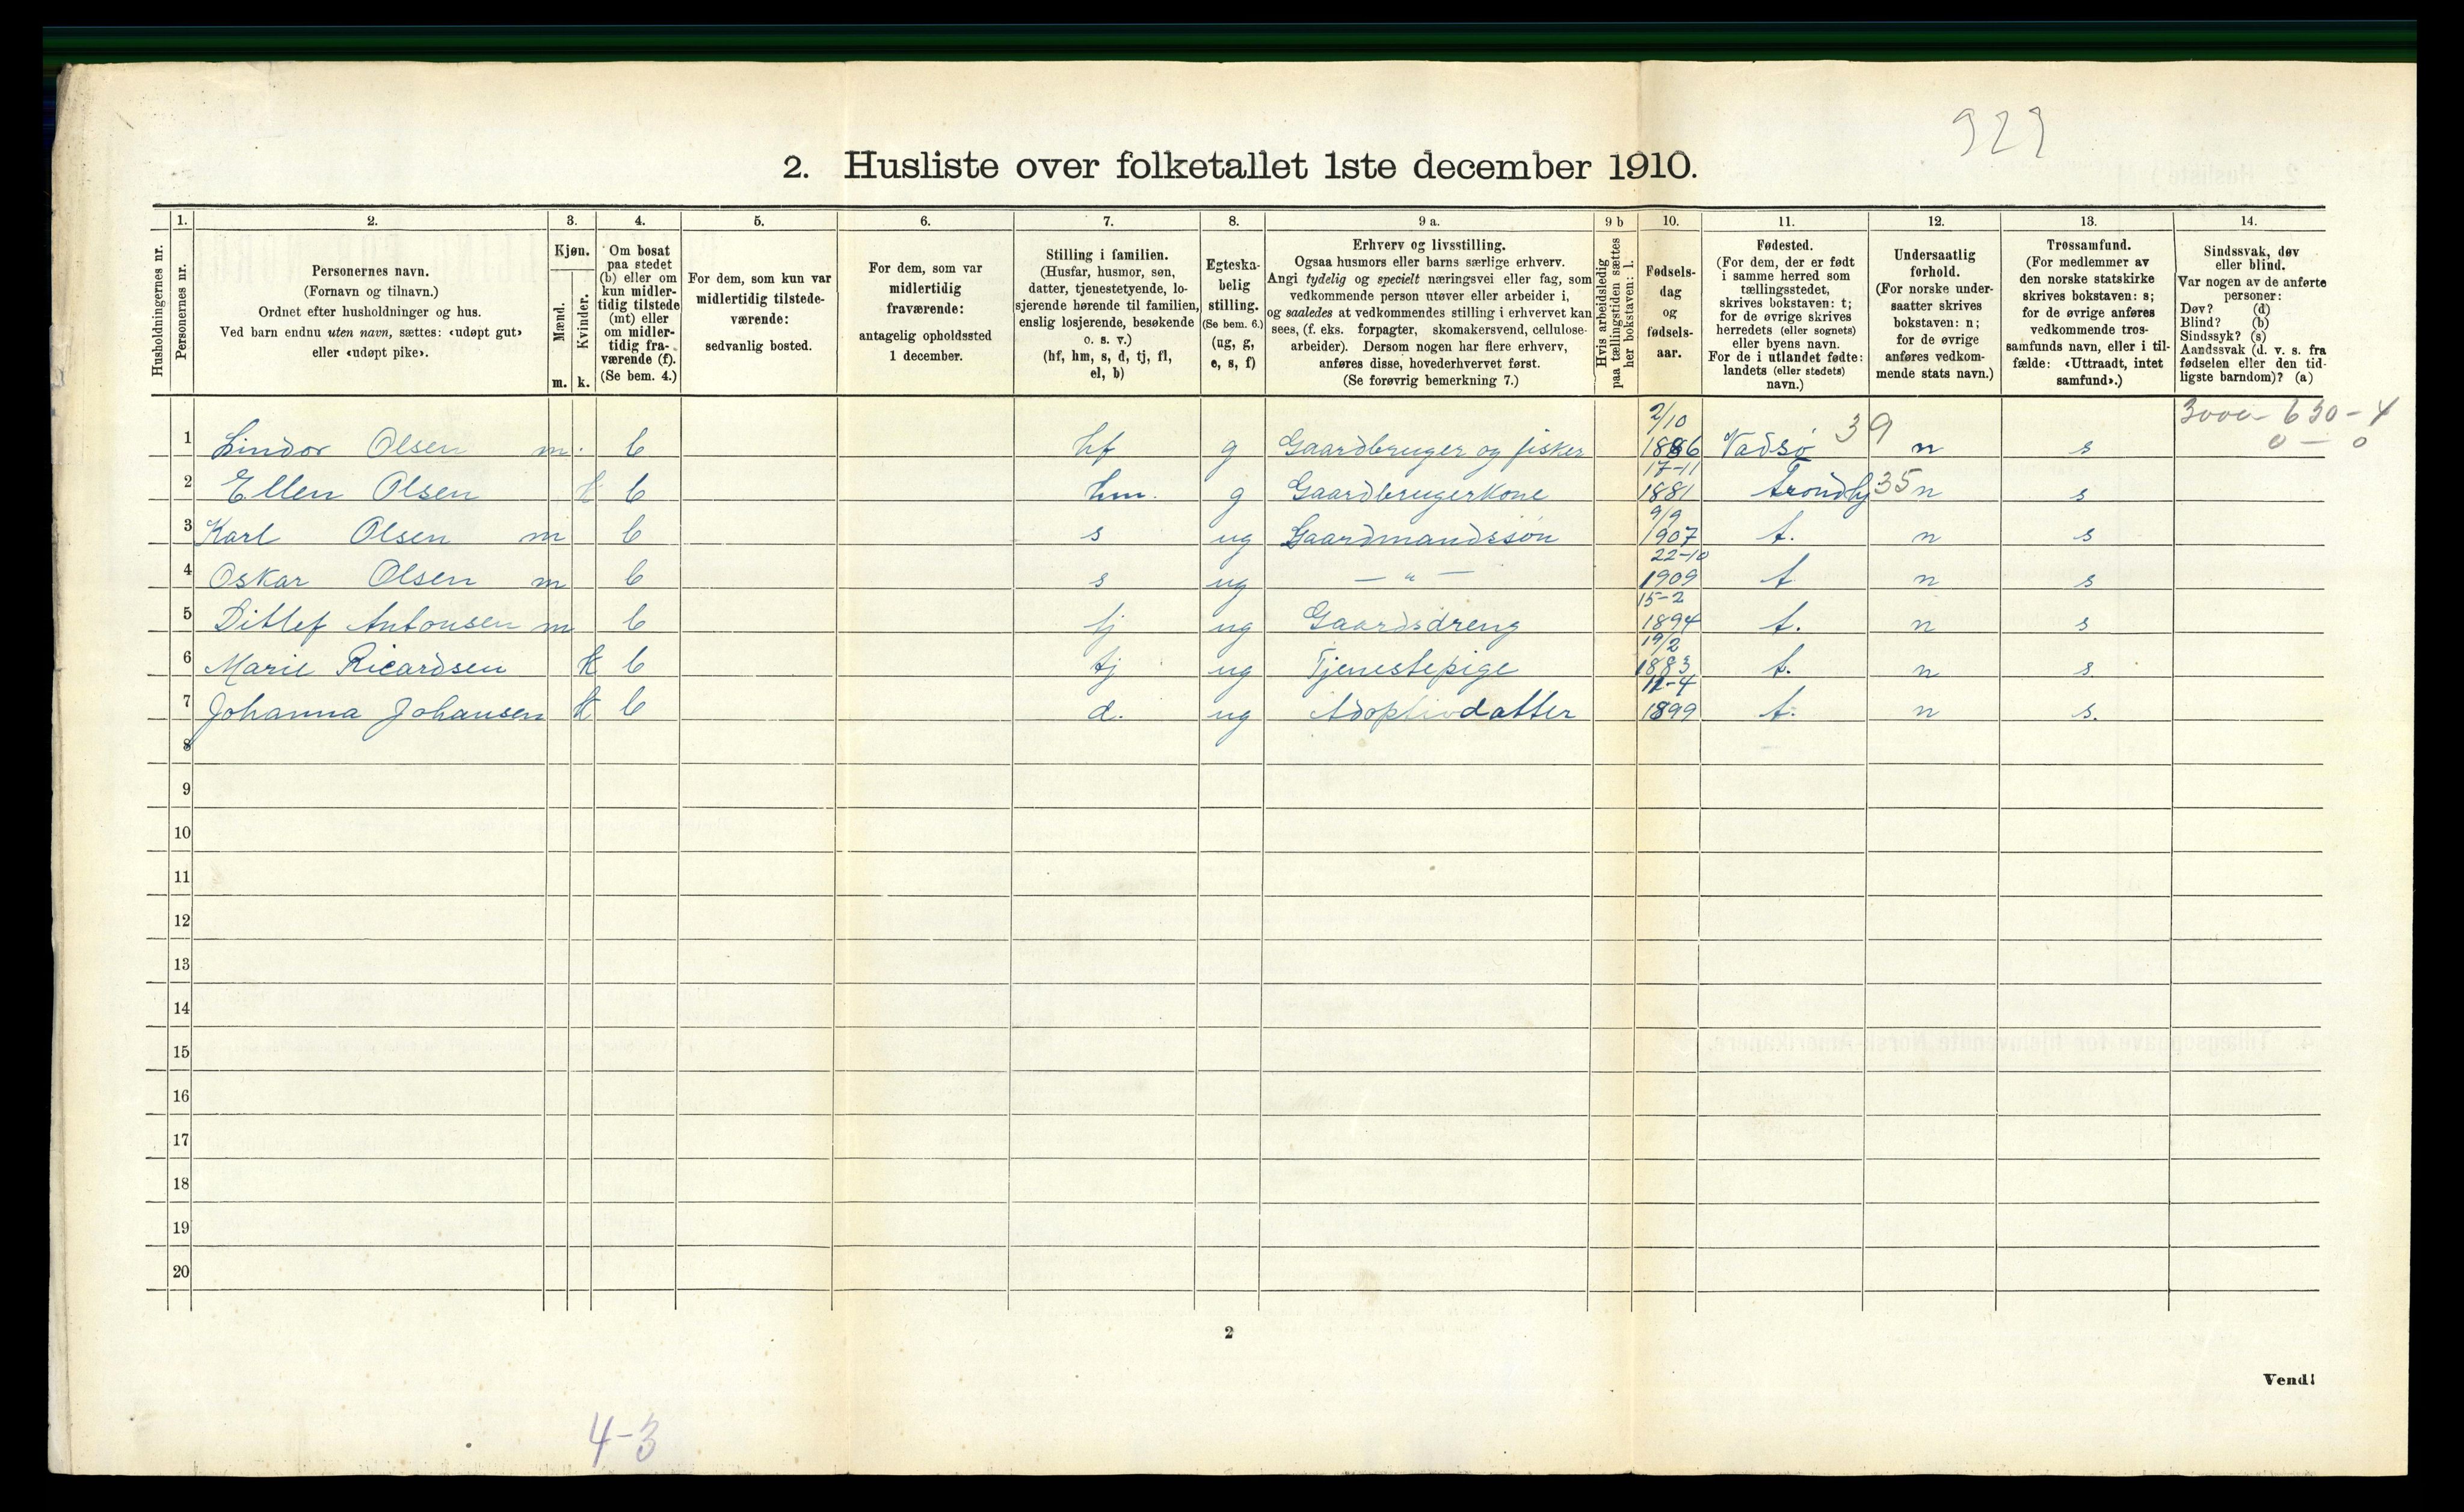 323
2. Husliste over folketallet 1ste december 1910.
Husholdningernes nr.
1.
Personernes nr.
2.
Personernes navn.
(Fornavn og tilnavn.)
Ordnet efter husholdninger og hus.
Ved barn endnu uten navn, sættes: «udøpt gut»
eller «udøpt pike».
3.
Kjøn.
Mænd.
Kvinder.
m. k.
4.
Om bosat
paa stedet
(b) eller om
kun midler-
tidig tilstede
(mt) eller
om midler-
tidig fra-
værende (f).
(Se bem. 4.)
5.
For dem, som kun var
midlertidig tilstede-
værende:
sedvanlig bosted.
6.
For dem, som var
midlertidig
fraværende:
antagelig opholdssted
1 december.
7.
Stilling i familien.
(Husfar, husmor, søn,
datter, tjenestetyende, lo-
sjerende hørende til familien,
enslig losjerende, besøkende
o. s. v.)
(hf, hm, s, d, tj, fl,
el, b)
8.
Egteska-
belig
stilling.
(Se bem. 6.)
(ug, g,
e, s, f)
9 a.
Erhverv og livsstilling.
Ogsaa husmors eller barns særlige erhverv.
Angi tydelig og specielt næringsvei eller fag, som
vedkommende person utøver eller arbeider i,
og saaledes at vedkommendes stilling i erhvervet kan
sees, (f. eks. forpagter, skomakersvend, cellulose-
arbeider). Dersom nogen har flere erhverv,
anføres disse, hovederhvervet først.
(Se forøvrig bemerkning 7.)
9 b
Hvis arbeidsledig
paa tællingstiden sættes
her bokstaven: l.
10.
Fødsels-
dag
og
fødsels-
aar.
11.
Fødested.
(For dem, der er født
i samme herred som
tællingsstedet,
skrives bokstaven: t;
for de øvrige skrives
herredets (eller sognets)
eller byens navn.
For de i utlandet fødte:
landets (eller stedets)
navn.)
12.
Undersaatlig
forhold.
(For norske under-
saatter skrives
bokstaven: n;
for de øvrige
anføres vedkom-
mende stats navn.)
13.
Trossamfund.
(For medlemmer av
den norske statskirke
skrives bokstaven: s;
for de øvrige anføres
vedkommende tros-
samfunds navn, eller i til-
fælde: «Uttraadt, intet
samfund».)
14.
Sindssvak, døv
eller blind.
Var nogen av de anførte
personer:
Døv? (d)
Blind? (b)
Sindssyk? (s)
Aandssvak (d. v. s. fra
fødselen eller den tid-
ligste barndom)? (a)
3000 - 630 - 4
0 — 0
1 Lindor Olsen m. b hf g Gaardbruger og fisker 2/10 1886 Vadsø 39 n s
2 Ellen Olsen k b hm. g Gaardbrugerkone 17-11 1881 Trondhj 35 n s
3 Karl Olsen m b s ug Gaardmandssøn 9/9 1907 t. n s
4 Oskar Olsen m b s ug — " — 22-10 1909 t n s
5 Ditlef Antonsen m b tj ug Gaardsdreng 15-2 1894 t. n s
6 Marie Ricardsen k b tj ug Tjenestepige 19/2 1883 t. n s
7 Johanna Johansen k b d. ug Adoptivdatter 12-4 1899 t. n s.
8
9
10
11
12
13
14
15
16
17
18
19
20
2
Vend!
4-3